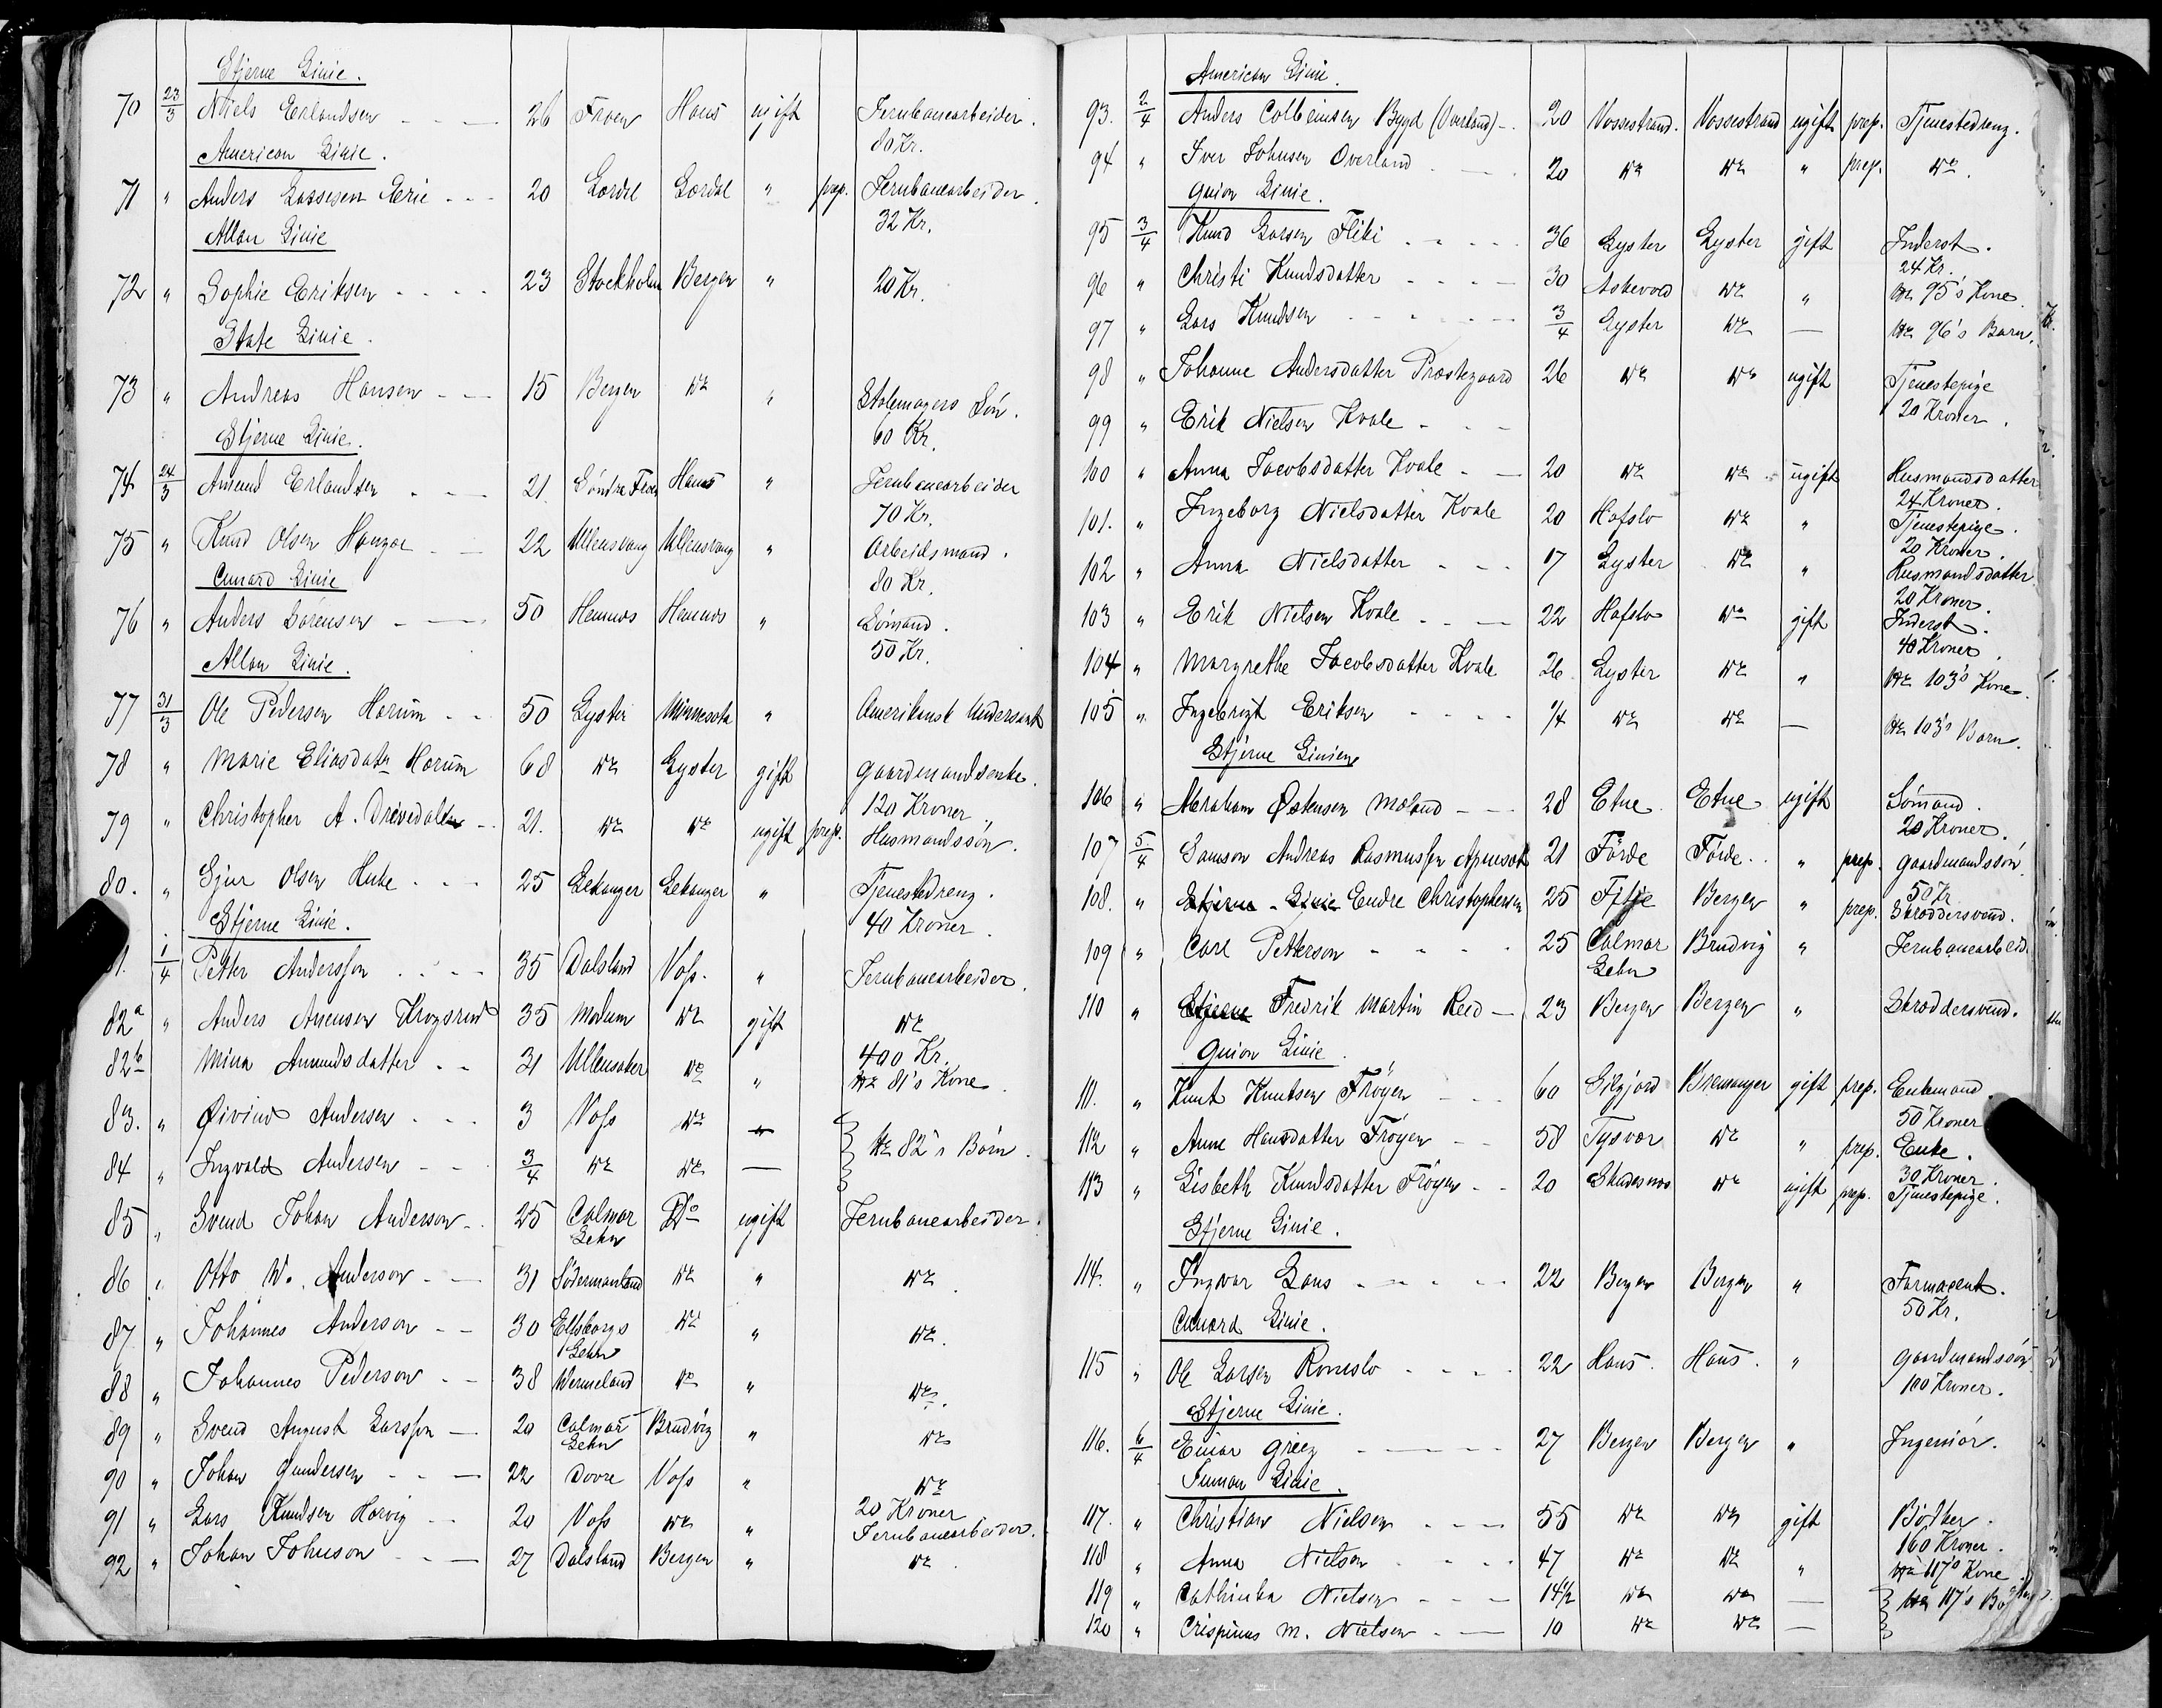 Stjerne Linie.
70 23/3 Niels Erlandsen - - - 26 Froen Haus ugift Jernbanearbeider.
80 Kr.
American Linie.
71 " Anders Lassesen Eerie - - - 20 Lærdal Lærdal " prep. Jernbanearbeider.
32 Kr.
Allan Linie
72 " Sophie Eriksen - - - - 23 Stockholm Bergen " 20 Kr.
State Linie.
73 " Andreas Hansen - - - 15 Bergen do " Stolemagers Søn.
60 Kr.
Stjerne Linie.
74 24/3 Amund Erlandsen - - - 21. Søndre Froen Haus " Jernbanearbeider
70 Kr.
75 " Knud Olsen - - 22 Ullensvang Ullensvang " Arbeidsmand.
80 Kr.
Cunard Linie
76 " Anders Sørensen - - - 50 Hennæs Hennæs " Sømand.
50 Kr.
Allan Linie.
77 31/3 Ole Pedersen Harum - - 50 Lyster Minnesota " Amerikansk Undersaat
78 " Marie Eliasdatr Harum 68 do Lyster gift Gaardmandsenke.
120 Kroner
79 " Christopher A. Drivedalen - 21. do do ugift prep. Husmandssøn.
80. " Sjur Olsen Huke - - - 25 Lekanger Lekanger " Tjenestedreng.
40 Kroner.
Stjerne Linie.
81. 1/4 Petter Andersson - - - - 35 Dalsland Voss. " Jernbanearbeider.
82a " Anders Anensen Krogsrud 35 Modum do gift do
400 Kr.
82b Mina Amundsdatter - - 31 Ullensaker do " No 81's Kone.
83. " Øivind Andersen - - - 3 Voss do —
No 82's Børn.
84 " Ingvald Andersen - - 3/4 do do —
85 " Svend Johan Anderson - - 25 Calmar Lehn Do ugift Jernbanearbeider.
86 " Otto W. Anderson - - 31 Södermanland do " do
87 " Johannes Anderson - - 30 Elfsborgs Lehn do " do.
88 " Johannes Pederson - - 38 Wermeland do " do.
89 " Svend August Larsson - 20 Calmar Lehn Brudvig " do
90 " Johan Gundersen - - - 22 Dovre Voss " do
20 Kroner
91 " Lars Knudsen Horvig - - 20 Voss do " Jernbanearbeider.
92 " Johan Johnson - - - 27 Dalsland Bergen " do.
American Linie.
93. 2/4 Anders Colbeinsen Bygd (Overland) - 20 Vossestrand. Vossestrand ugift prep. Tjenestedreng.
94 " Iver Johnsen Overland - - 20 do do " prep. do.
Guion Linie.
95 3/4 Knud Larsen Fliki - - - - 36 Lyster Lyster gift Inderst.
24 Kr.
96 " Christi Knudsdatter - - - - 30 Askevold do " No 95's Kone.
97 " Lars Knudsen - - - - - 3/4 Lyster do — No 96's Barn.
98 " Johanne Andersdatter Præstegaard 26 do do ugift Tjenestepige
20 Kroner.
99 " Erik Nielsen Kvale - - -
100 " Anna Jacobsdatter Kvale - - 20 do do ugift Husmandsdatter
24 Kroner.
101. " Ingeborg Nielsdatter Kvale 20 Hafslo do " Tjenestepige.
20 Kroner.
102 " Anna Nielsdatter - - - 17 Lyster do " Husmandsdatter
20 Kroner.
103 " Erik Nielsen Kvale - - - 22 Hafslo do gift Inderst.
40 Kroner.
104 " Margrethe Jacobsdatter Kvale 26 Lyster do " No 103's Kone.
105 " Ingebrigt Eriksen - - - - 1/4 do do — No 103's Barn.
Stjerne Linien
106 " Abraham Østensen Moland - - 28 Etne Etne ugift Sømand.
20 Kroner.
107 5/4 Samson Andreas Rasmussen 21 Förde Förde. " prep. Gaardmandssøn.
50 Kr
108. " Stjerne - Linie Endre Christophersen 25 Fitje Bergen " prep. Skræddersvend.
109 " Carl Petterson - - - - 25 Calmar Lehn Brudvig " Jernbanearbeid.
110 " Stjerne Fredrik Martin Reed - 23 Bergen Bergen " Skræddersvend.
Guion Linie.
111. " Knut Knutsen Frøyen - - - 60 Gilgjord Bremanger gift prep. Enkemand.
50 Kroner
112 " Anne Hansdatter Frøyen - - 58 Tysvær do " prep. Enke.
30 Kroner.
113 " Lisbeth Knudsdatter Frøyen - - 20 Skudesnæs do ugift prep. Tjenestepige.
Stjerne Linie.
114. " Ingvar Gans - - - - - 22 Bergen Bergen " Farmaceut.
50 Kr.
Cunard Linie.
115 " Ole Larsen Romslo - - - - 22 Haus. Haus. " Gaardmandssøn
100 Kroner.
Stjerne Linie.
116. 6/4 Einar Greeg - - - - - 27 Bergen Bergen " Ingeniør.
Inman Linie.
117. " Christian Nielsen - - - - 55 do do gift Bødker.
160 Kroner.
118 " Anna Nielsen - - - - 47 do do " No 117's Kone
119 " Cathinka Nielsen - - - 14 1/2 do do —
No 117's Børn
120 " Crispinus M. Nielsen - - 10 do do —